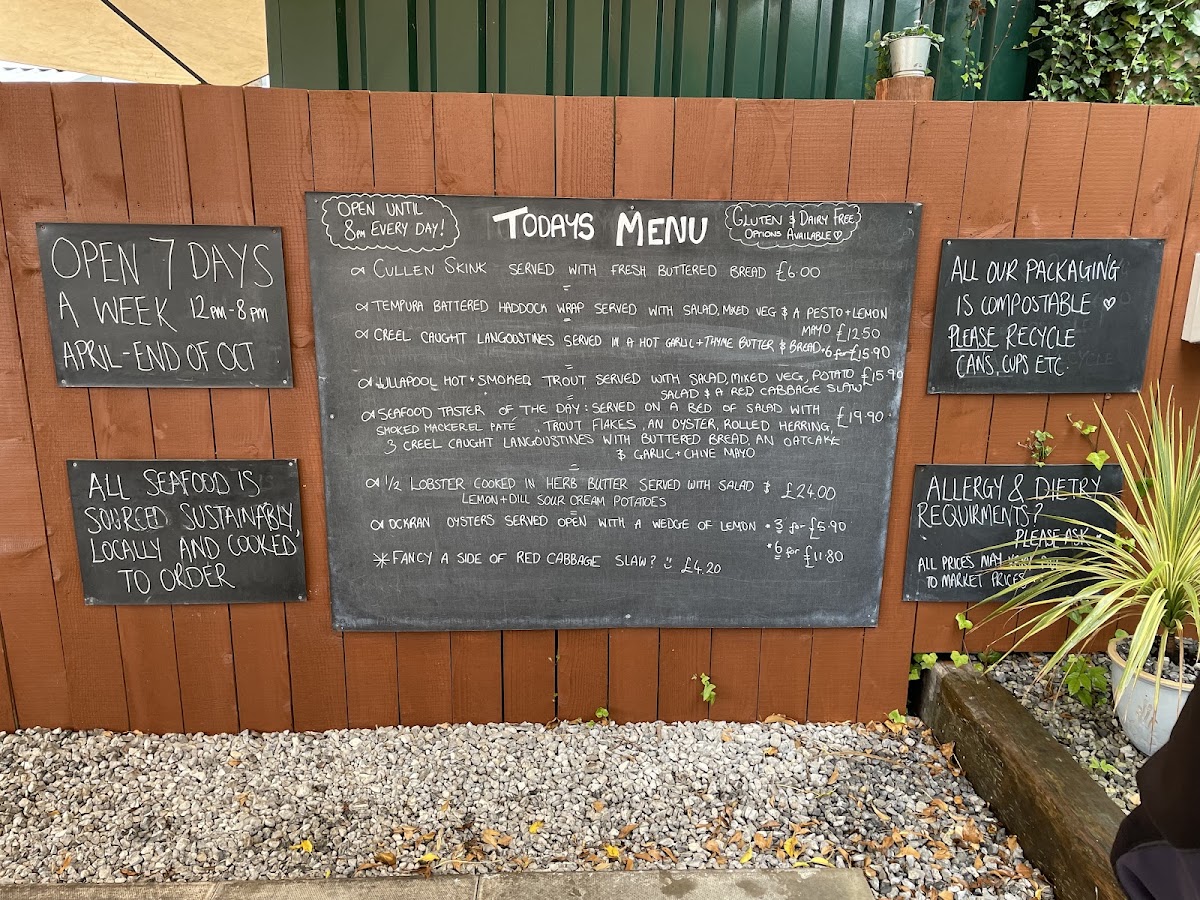 OPEN 7 DAYS
A WEEK 12PM-8PM
APRIL-END OF OCT
ALL SEAFOOD IS
SOURCED SUSTAINABLY,
LOCALLY AND COOKED
TO ORDER
OPEN UNTIL
8PM EVERY DAY!
TODAYS MENU
GLUTEN & DAIRY FREE
OPTIONS AVAILABLE ♡
CULLEN SKINK SERVED WITH FRESH BUTTERED BREAD £6.00
TEMPURA BATTERED HADDOCK WRAP SERVED WITH SALAD, MIXED VEG & A PESTO+LEMON
MAYO £12.50
CREEL CAUGHT LANGOUSTINES SERVED IN A HOT GARLIC+THYME BUTTER & BREAD *6 for £15.90
ULLAPOOL HOT * SMOKED TROUT SERVED WITH SALAD, MIXED VEG, POTATO £15.90
SALAD & A RED CABBAGE SLAW
SEAFOOD TASTER OF THE DAY: SERVED ON A BED OF SALAD WITH £19.90
SMOKED MACKEREL PATE, TROUT FLAKES, AN OYSTER, ROLLED HERRING,
3 CREEL CAUGHT LANGOUSTINES WITH BUTTERED BREAD, AN OATCAKE
& GARLIC+CHIVE MAYO
1/2 LOBSTER COOKED IN HERB BUTTER SERVED WITH SALAD & £24.00
LEMON+DILL SOUR CREAM POTATOES
OCKRAN OYSTERS SERVED OPEN WITH A WEDGE OF LEMON *3 for £5.90
*6 for £11.80
*FANCY A SIDE OF RED CABBAGE SLAW? £4.20
ALL OUR PACKAGING
IS COMPOSTABLE ♡
PLEASE RECYCLE
CANS, CUPS ETC.
ALLERGY & DIETRY
REQUIRMENTS?
PLEASE ASK
ALL PRICES MAY
TO MARKET PRICES